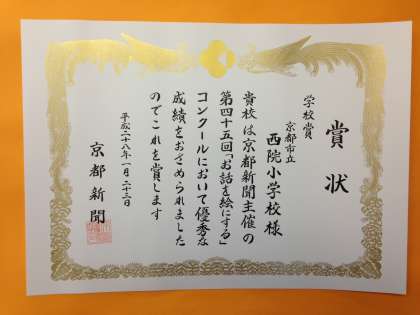 賞状
学校賞
京都市立
西院小学校様
貴校は京都新聞主催の
第四十五回「お話を絵にする」
コンクールにおいて優秀な
成績をおさめられました
のでこれを賞します
平成二十八年一月二十三日
京都新聞